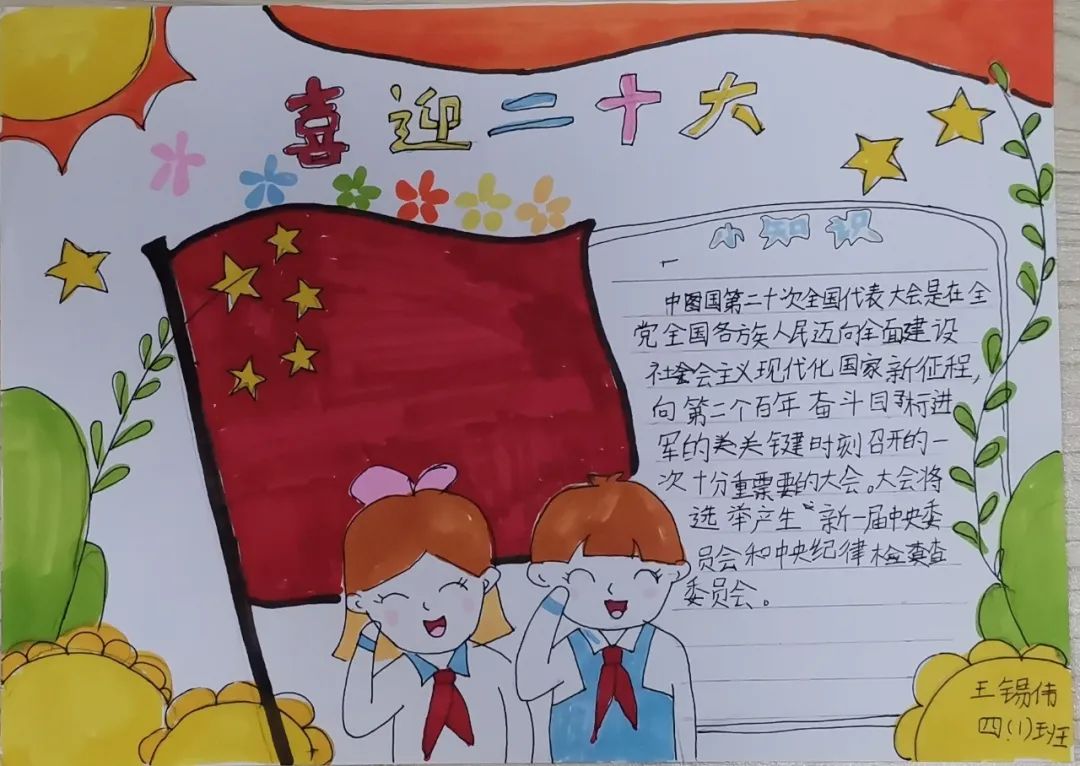 喜迎二十大
小知识
中国国第二十次全国代表大会是在全
党全国各方族人民迈向全面建设
社会会主义现代化国家新征程,
向第二个百年奋斗目标进
军的关关键时刻召开的一
次十分重票要的大会。大会将
选举产生“新一届中央委
员会和中央纪律检查查
委员会。
王锡伟
四(1)班